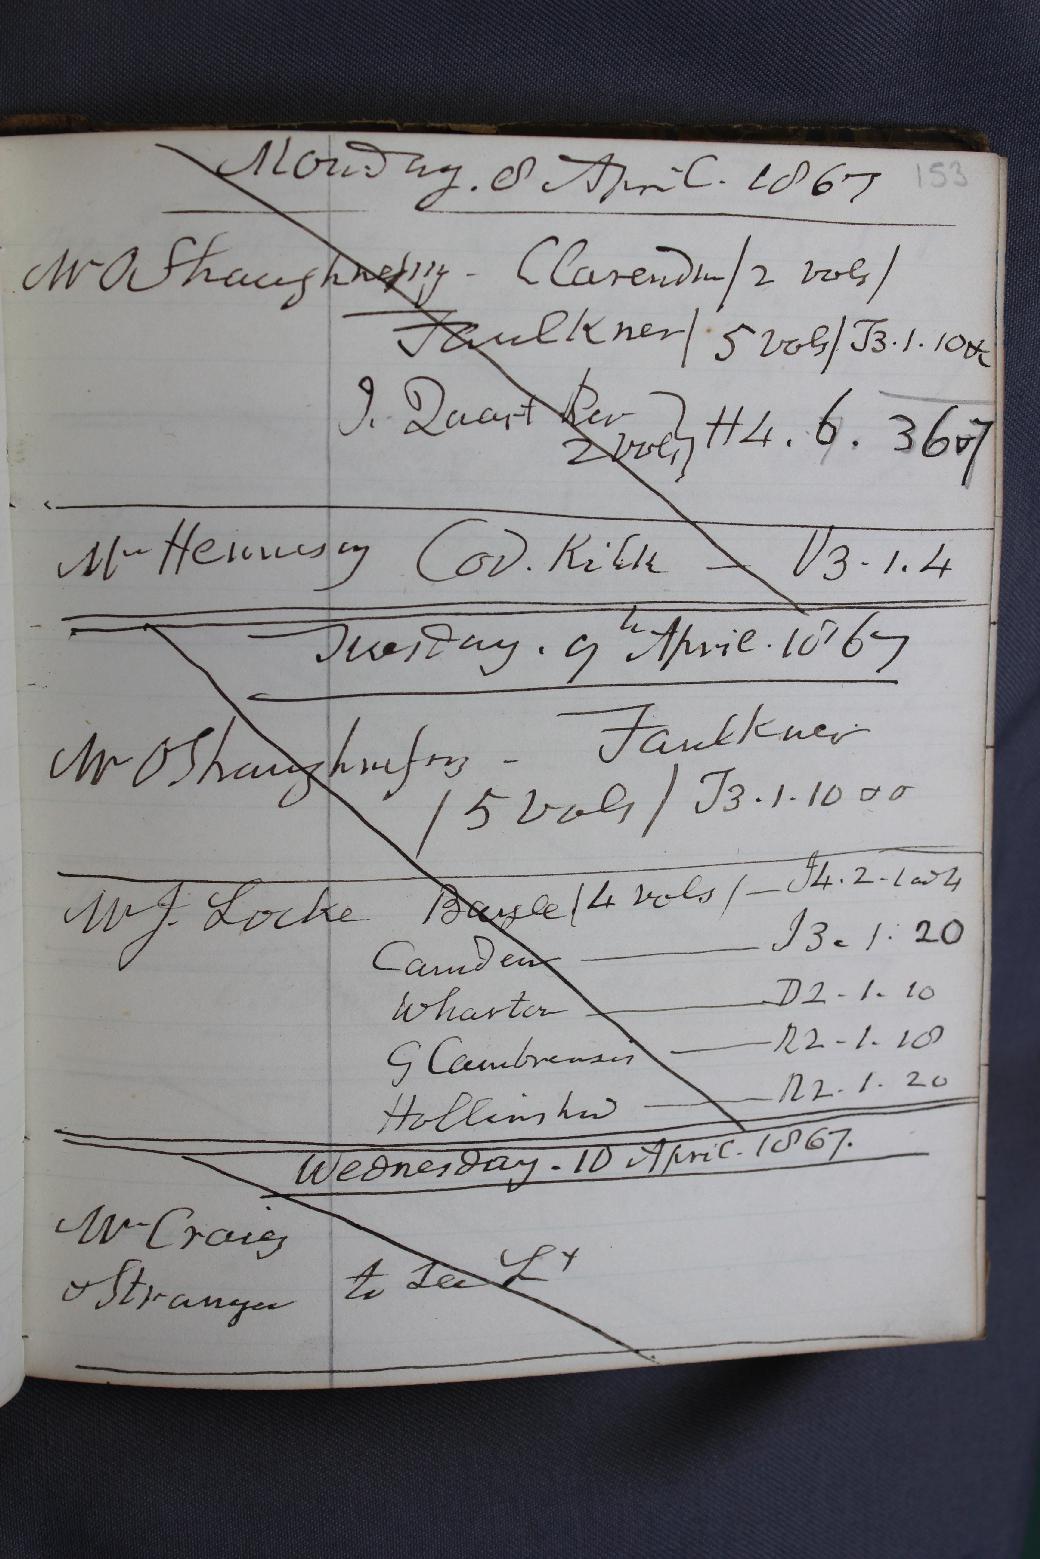 153
Monday. 8 April. 1867
Mr O'Shaughnessy - Clarendon / 2 vols /
Faulkner / 5 vols / J3.1.10
Quart Rev
2 vols } H4.6.36
Mr Hennessy Cod. Kilk - V3.1.4
Tuesday. 9th April. 1867
Mr O'Shaughnessy - Faulkner
/ 5 vols / J3.1.10
Mr J. Locke Bayle / 4 vols / - J4.2.1
Camden - J3.1.20
Wharton - D2.1.10
G Cambrensis - R2.1.18
Hollinshed - R2.1.20
Wednesday. 10 April. 1867.
Mr Craig
& Stranger to See